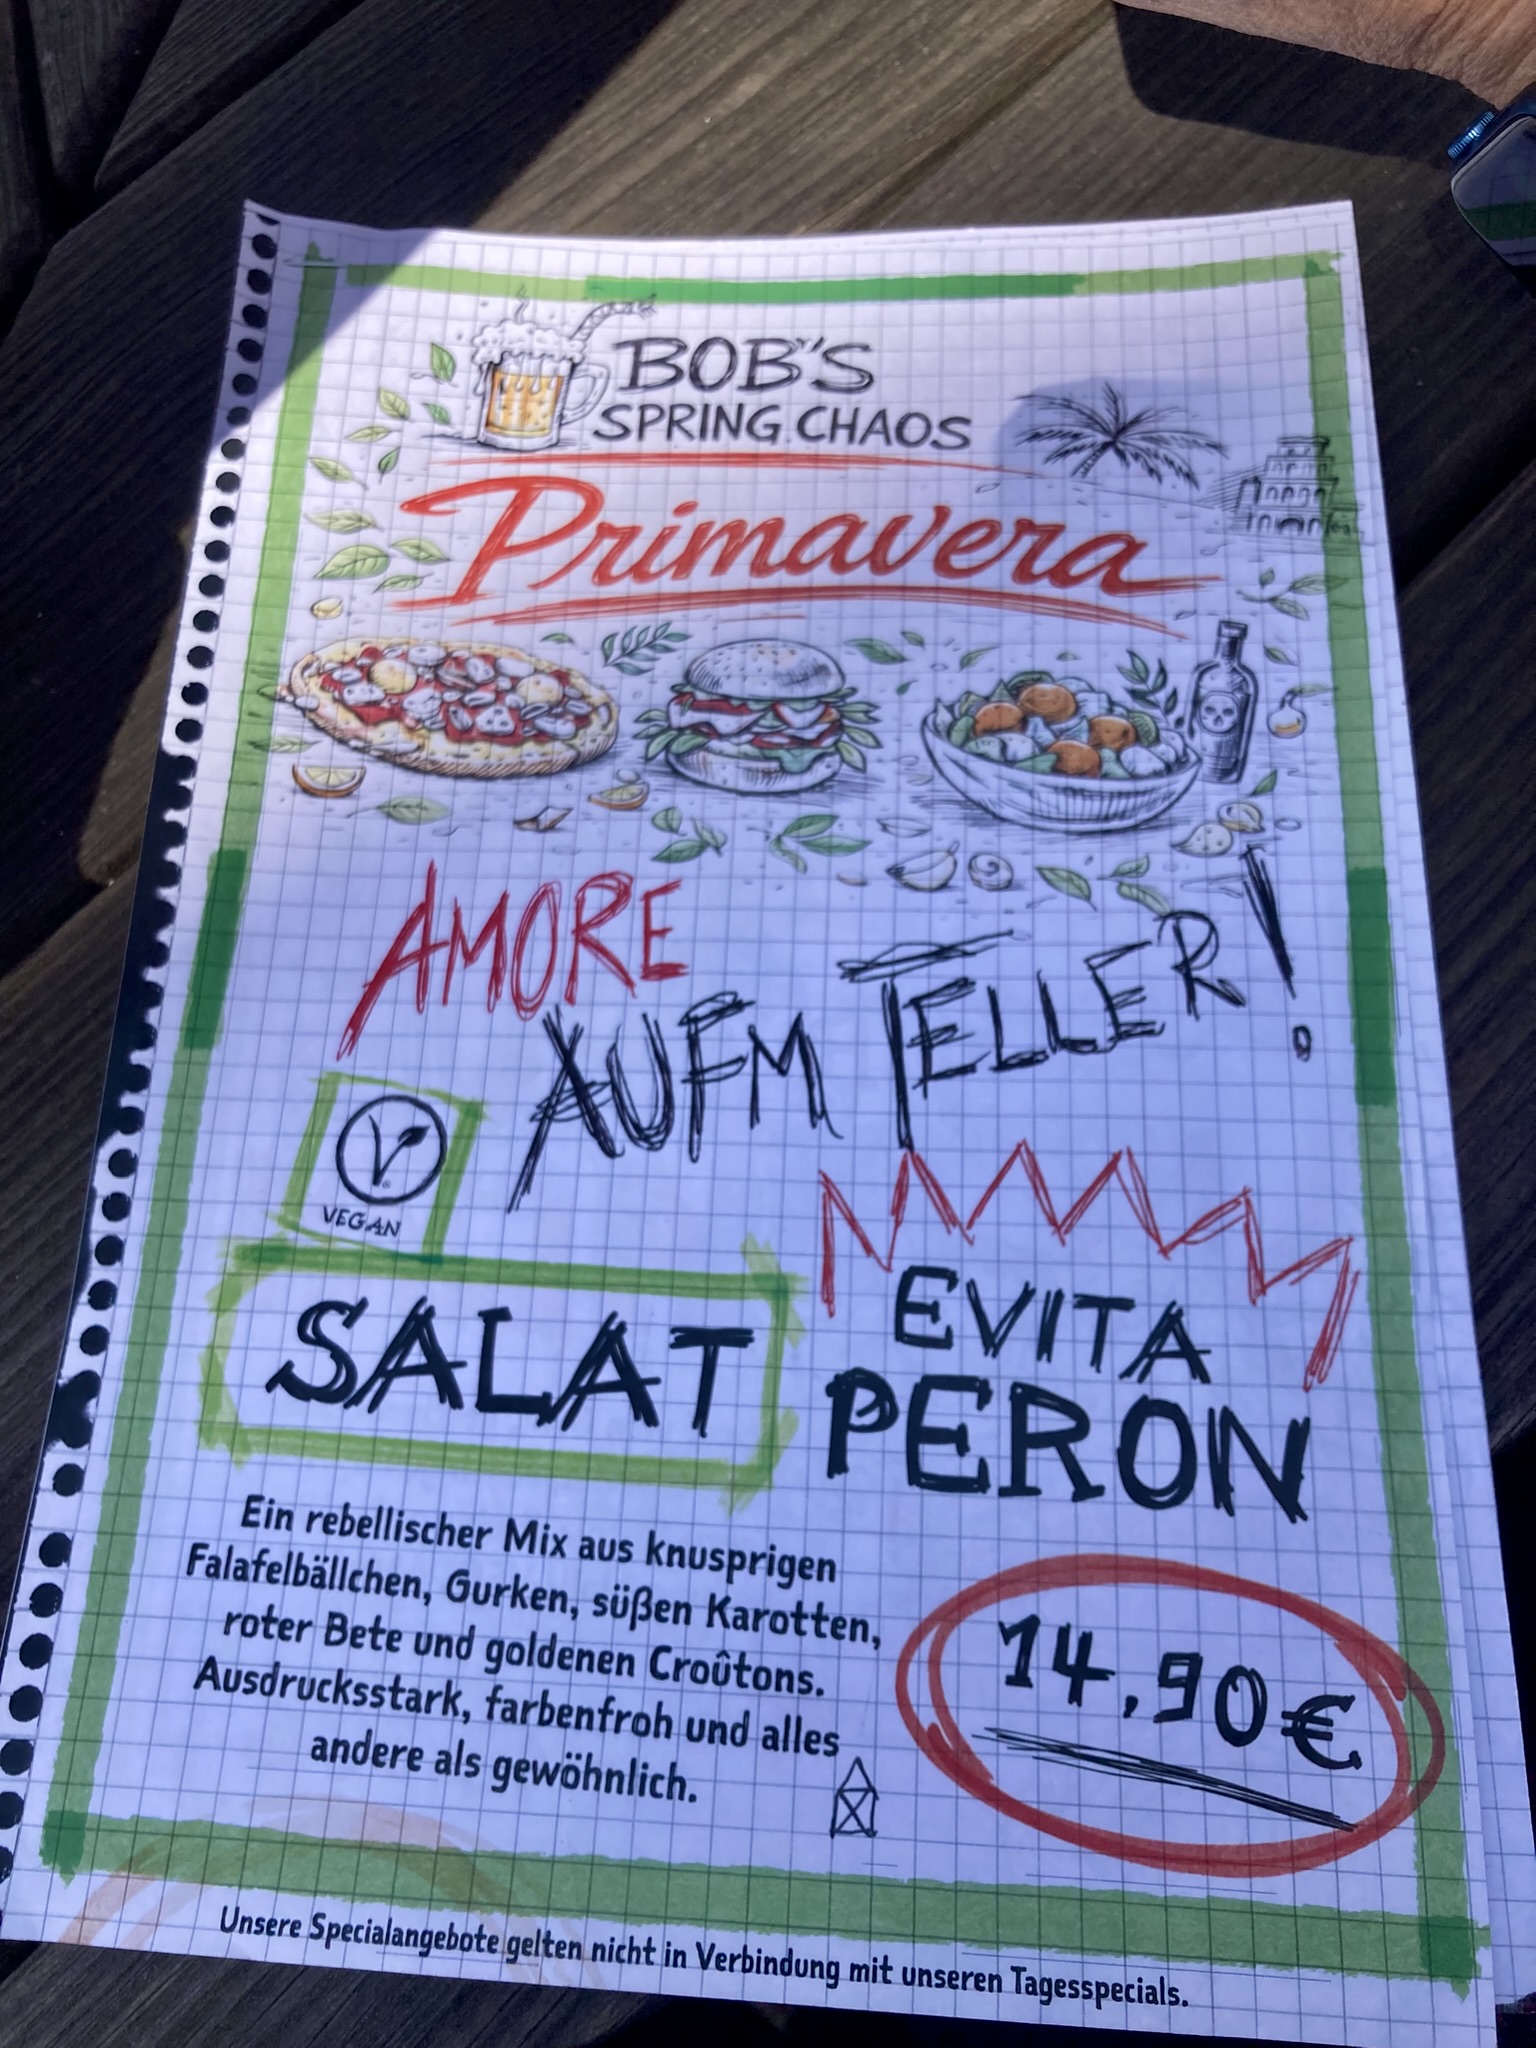 BOB'S
SPRING CHAOS
Primavera
AMORE
AUFM TELLER!
VEGAN
SALAT
EVITA
PERON
Ein rebellischer Mix aus knusprigen
Falafelbällchen, Gurken, süßen Karotten,
roter Bete und goldenen Croûtons.
Ausdrucksstark, farbenfroh und alles
andere als gewöhnlich.
14,90€
Unsere Specialangebote gelten nicht in Verbindung mit unseren Tagesspecials.